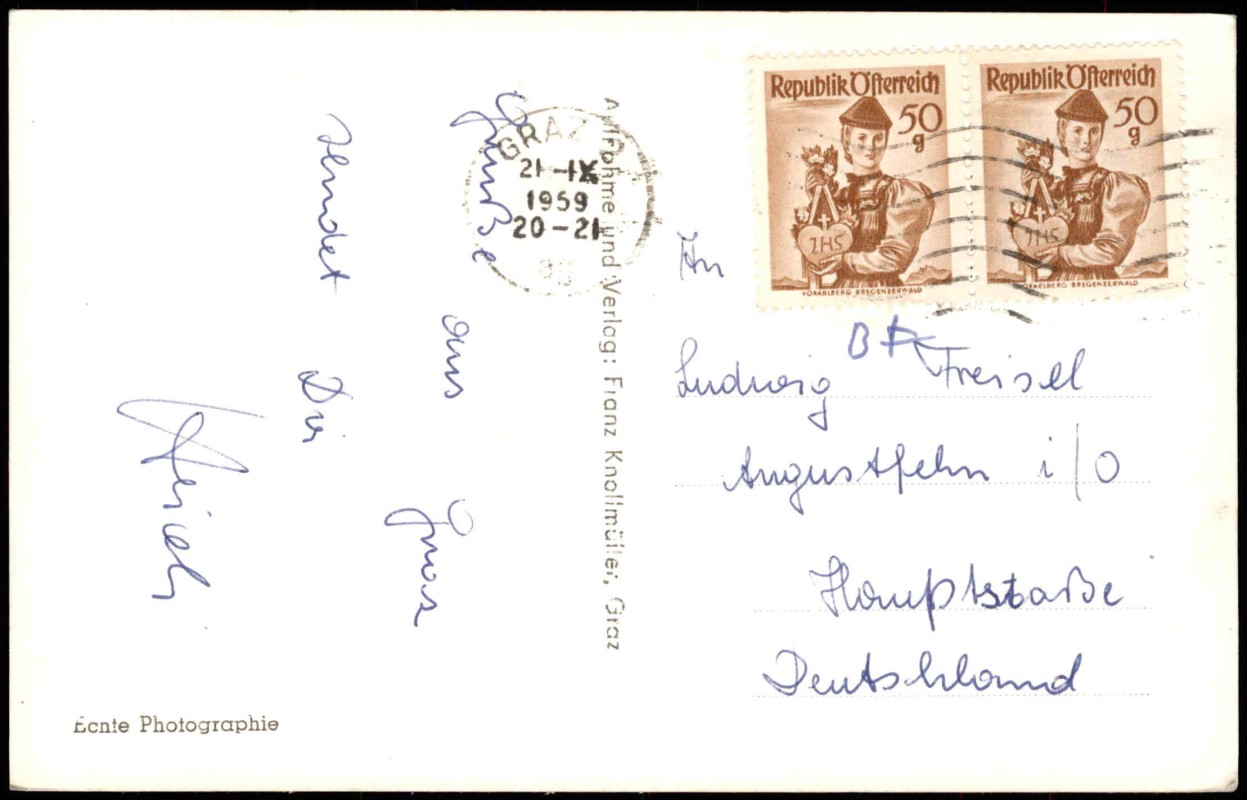 Grüße aus Graz
sendet Dir
Aufnahme und Verlag: Franz Knollmüller, Graz
Echte Photographie
GRAZ
21-IX
1959
20-21
Republik Österreich
50
g
IHS
VORARLBERG BREGENZERWALD
Republik Österreich
50
g
IHS
VORARLBERG BREGENZERWALD
An
Ludwig Freisel
Augustfehn i/O
Hauptstraße
Deutschland